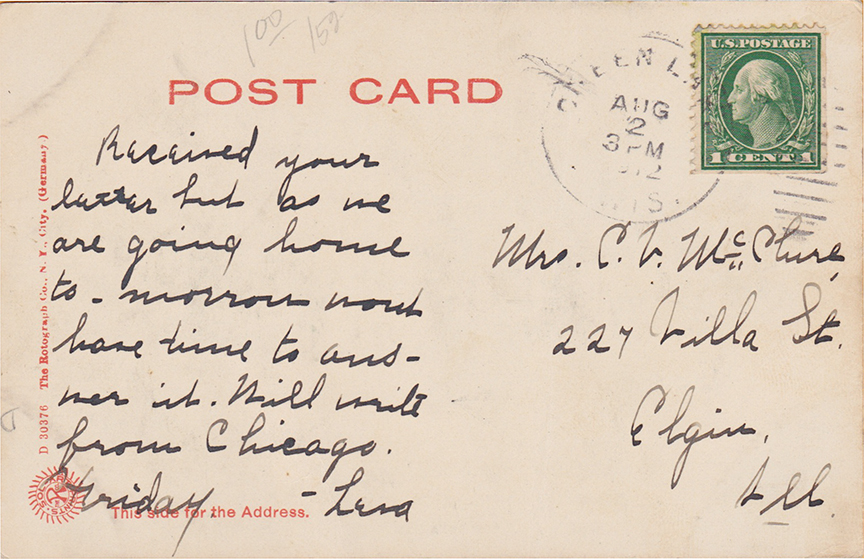 1.00
POST CARD
GREEN L
AUG
2
3 PM
1912
WIS.
U.S. POSTAGE
1 CENT 1
Received your
letter but as we
are going home
to-morrow wont
have time to ans-
wer it. Will write
from Chicago.
Friday. - Lena
Mrs. C. V. McClure,
227 Villa St.
Elgin,
Ill.
D 30376 The Rotograph Co., N. Y., City. (Germany.)
This side for the Address.